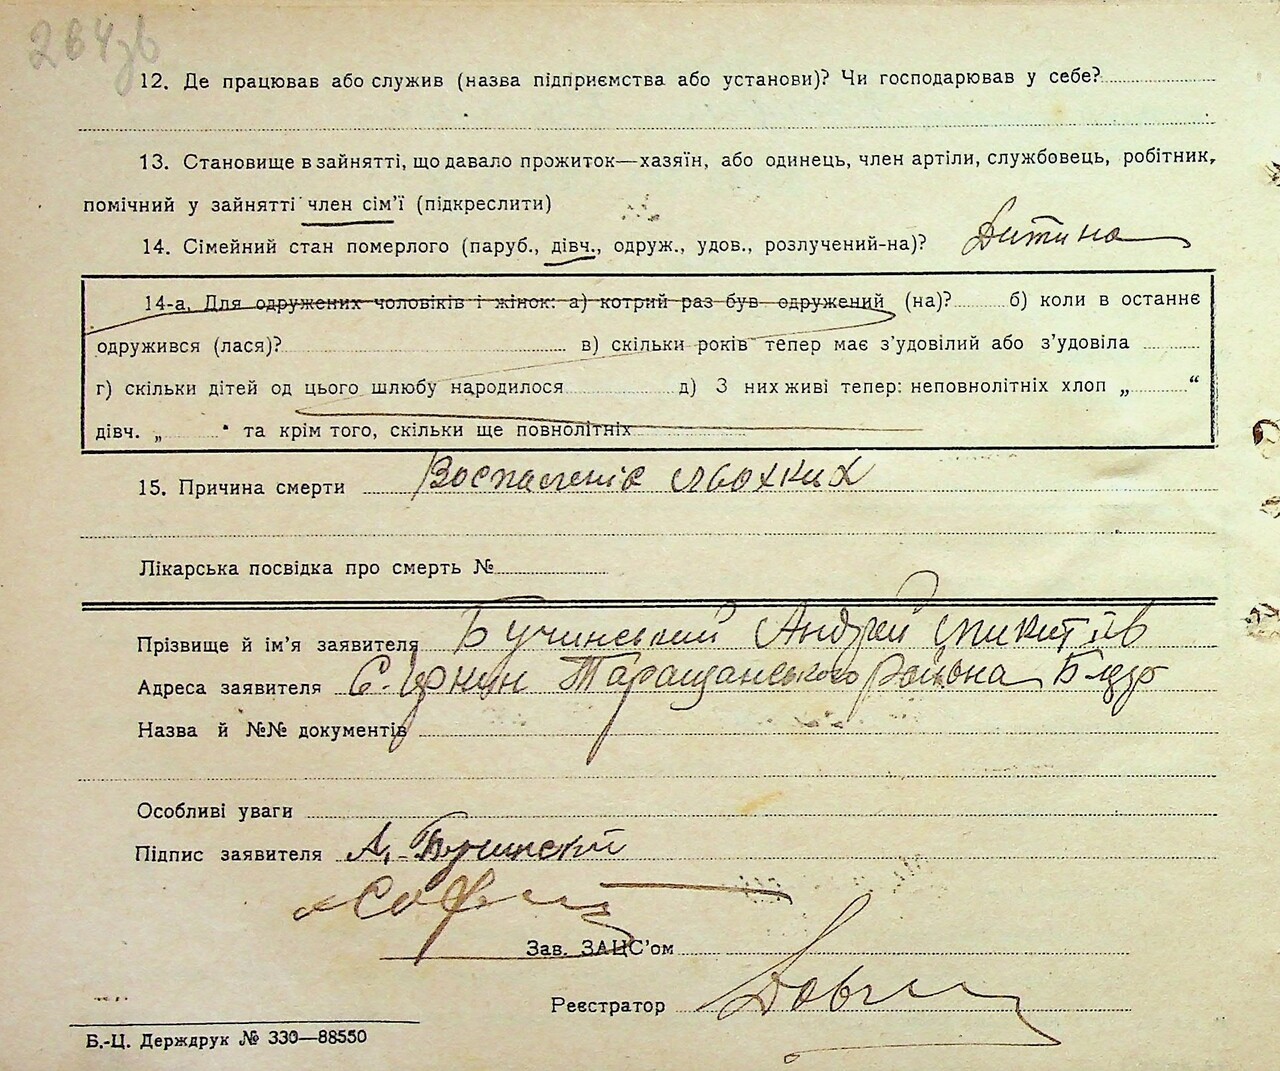 264зв
12. Де працював або служив (назва підприємства або установи)? Чи господарював у себе?
13. Становище в зайнятті, що давало прожиток—хазяїн, або одинець, член артіли, службовець, робітник,
помічний у зайнятті член сім'ї (підкреслити)
14. Сімейний стан померлого (паруб., дівч., одруж., удов., розлучений-на)? Дитина
14-а. Для одружених чоловіків і жінок: а) котрий раз був одружений (на)? б) коли в останнє
одружився (лася)? в) скільки років тепер має з'удовілий або з'удовіла
г) скільки дітей од цього шлюбу народилося д) З них живі тепер: неповнолітніх хлоп „ “
дівч. „ “ та крім того, скільки ще повнолітніх
15. Причина смерти Воспаленіє льохких
Лікарська посвідка про смерть №
Прізвище й ім'я заявителя Бучинський Андрей Микитів
Адреса заявителя С. Таращанського района
Назва й №№ документів
Особливі уваги
Підпис заявителя А. Бучинский
Зав. ЗАЦС'ом
Реєстратор
Б.-Ц. Держдрук № 330—88550